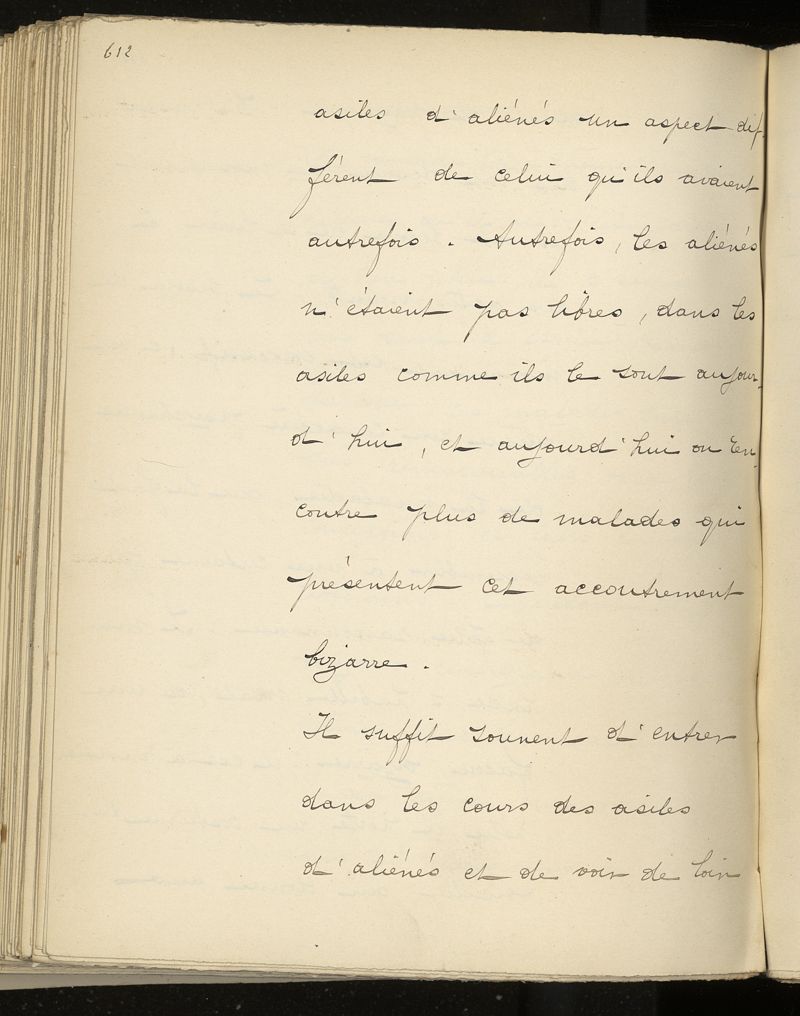 612
asiles d'aliénés un aspect dif-
férent de celui qu'ils avaient
autrefois. Autrefois, les aliénés
n'étaient pas libres, dans les
asiles comme ils le sont aujour-
d'hui, et aujourd'hui on ren-
contre plus de malades qui
présentent cet accoutrement
bizarre.
Il suffit souvent d'entrer
dans les cours des asiles
d'aliénés et de voir de loin